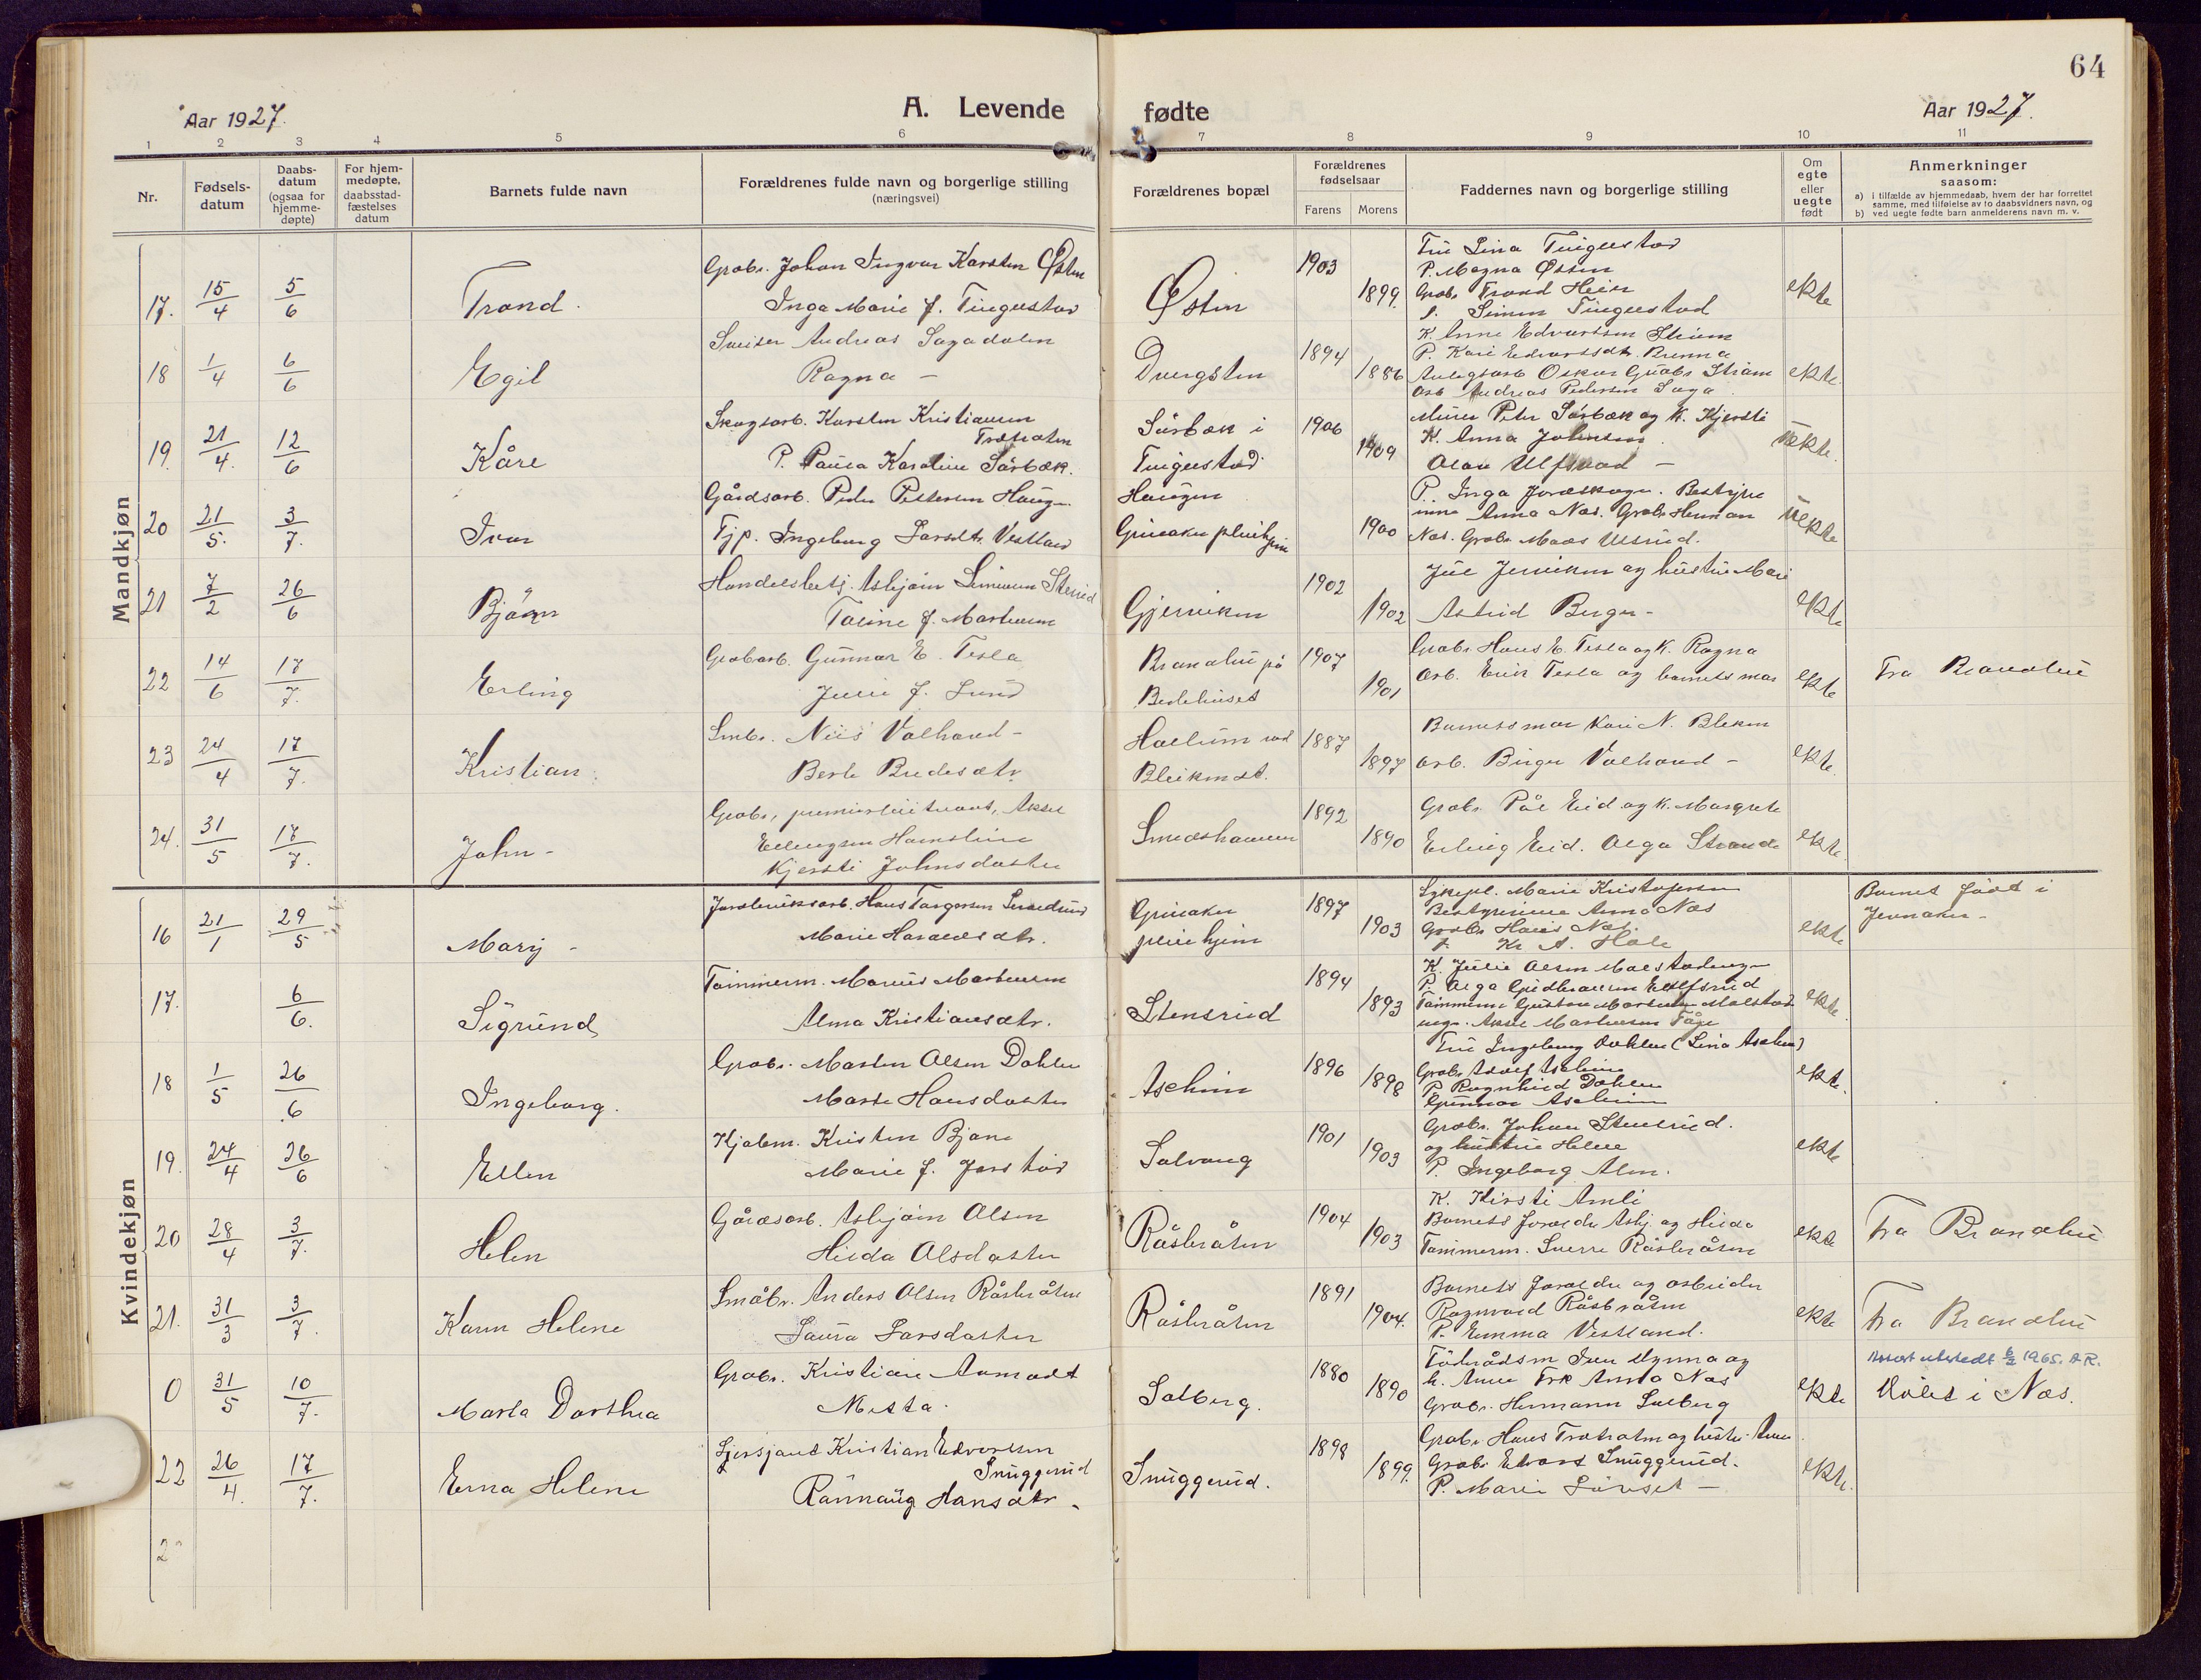 64
Aar 1927.
A. Levende fødte
Aar 1927.
1 2 3 4 5 6 7 8 9 10 11
Nr.
Fødsels-
datum
Daabs-
datum
(ogsaa for
hjemme-
døpte)
For hjem-
medøpte,
daabsstad-
fæstelses
datum
Barnets fulde navn
Forældrenes fulde navn og borgerlige stilling
(næringsvei)
Forældrenes bopæl
Forældrenes
fødselsaar
Farens Morens
Faddernes navn og borgerlige stilling
Om
egte
eller
uegte
født
Anmerkninger
saasom:
a) i tilfælde av hjemmedaab, hvem der har forrettet
samme, med tilføielse av to daabsvidners navn, og
b) ved uegte fødte barn anmelderens navn m. v.
Mandkjøn
17. 15/4 5/6 Trond.
Grdbr. Johan Ingvar Karsten Østen
Inga Marie f. Tingelstad
Østen
1903
1899.
Fru Lina Tingelstad
P. Magna Østen
Grdbr Trond Heier
S. Simen Tingelstad
ekte
18 1/4 6/6 Egil
Sveiser Andreas Sagadalen
Ragna -
Dvergsten
1894
1886
P. Kari Edvartsdtr. Brenna
Anlegsarb Oskar
Arb Andreas Pedersen Saga
ekte.
19. 21/4. 12/6 Kåre
Skogsarb. Karsten Kristiansen
P. Paula Karoline Sørbæk.
Sørbæk i
Tingelstad
1906
1909
Murer Peter Sørbæk og K. Kjersti
K. Anna Johnsen.
Olav Ulfsvad -
uekte.
20 21/5. 3/7. Ivar
Gårdsarb. Peder Pettersen Haugen
Tjp. Ingeborg Larsdtr. Vestland
Haugen
Grinaker pleiehjem
1900
P. Inga Jordskogen. Bestyrer
inne Anna Næs. Grdbr Herman
Næs. Grdbr Maas Ulsrud.
uekte
21 7/2 26/6 Bjørn
Handelsbetj. Asbjørn Simensen Stenrud
Torine f. Martinsen
Gjerviken
1902
1902
Jul Jerviken og hustru Mari
Astrid Berger -
ekte
22 14/6 17/7. Erling
Grdbarb. Gunnar E. Tesla
Julie f. Lund
Brandbu på
Bedehuset
1907
1901
Grdbr Hans E. Tesla og K. Ragna
Arb. Erik Tesla og barnets mor
ekte
Fra Brandbu
23 24/4 17/7. Kristian.
Smbr. Nils Volhaud -
Berte Bredesdtr
Hallum ved
Bleiken st.
1887
1897
Barnets mor Kari N. Bleken
Arb. Birger Volhaud -
ekte.
24. 31/5 17/7. John -
Grdbr, premierløitnant, Aksel
Ellingsen
Kjersti Johnsdatter
Smedshammer
1892
1890
Grdbr Pål Eid og K. Margrete
Erling Eid. Olga Strande
ekte.
Kvindekjøn
16 21/1 29/5 Mary -
Marie Haraldsdtr.
Grinaker
pleiehjem
1897
1903
Sykepl. Marie Kristofersen
Bestyrerinne Anna Næs
Grdbr Hans Næs.
ekte
Barnet født i
Jevnaker -
17. 6/6. Sigrund
Tømmerm. Marius Martinsen
Alma Kristiansdtr.
Stensrud
1894
1893
K. Julie Olsen
ekte.
18 1/5 26/6 Ingeborg.
Grdbr. Marten Olsen Dahlen
Marte Hansdatter
Aschim
1896
1898
Fru Ingeborg Dahlen (Lina Aschim)
Grdbr Adolf Aschim
P Ragnhild Dahlen
Gunnar Aschim
ekte.
19. 24/4 26/6 Ellen
Kristen Bjone
Marie f. Jorstad
Solvang
1901
1903
Grdbr. Johan Stensrud.
og hustru Helene
P. Ingeborg Alm.
ekte
20 28/4 3/7. Helen
Gårdsarb. Asbjørn Olsen
Hilda Olsdatter
Råsbråten
1904
1903
K. Kirsti Amli
Barnets foreldre Asbj. og Hilda
Tømmerm. Sverre Råsbråten
ekte
Fra Brandbu
21. 31/3 3/7. Karen Helene
Småbr. Anders Olsen Råsbråten
Laura Larsdatter
Råsbråten
1891
1904.
Barnets foreldre og arbeider
Ragnvald Råsbråten
P. Emma Vestland.
ekte
Fra Brandbu
0 31/5 10/7. Marta Dorthea
Grdbr. Kristian Aamodt
Metta.
Solberg.
1880
1890
Føderådsm Iver Mynna og
h. Anne Frk Anna Næs
Grdbr. Hermann Solberg
ekte
Attest utstedt 6/2 1965. A.R.
Døbt i Næs.
22 26/4. 17/7. Erna Helene
Kristian Edvartsen
Snuggerud
Rønnaug Hansdtr.
Snuggerud.
1898
1899.
Grdbr Hans Træholm og hustru Anne
Grdbr Edvart Snuggerud.
P. Marie
ekte.